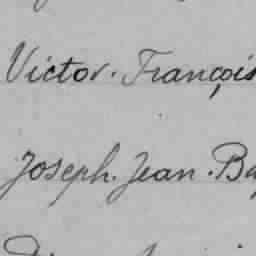 Victor. François
Joseph. Jean. Ba